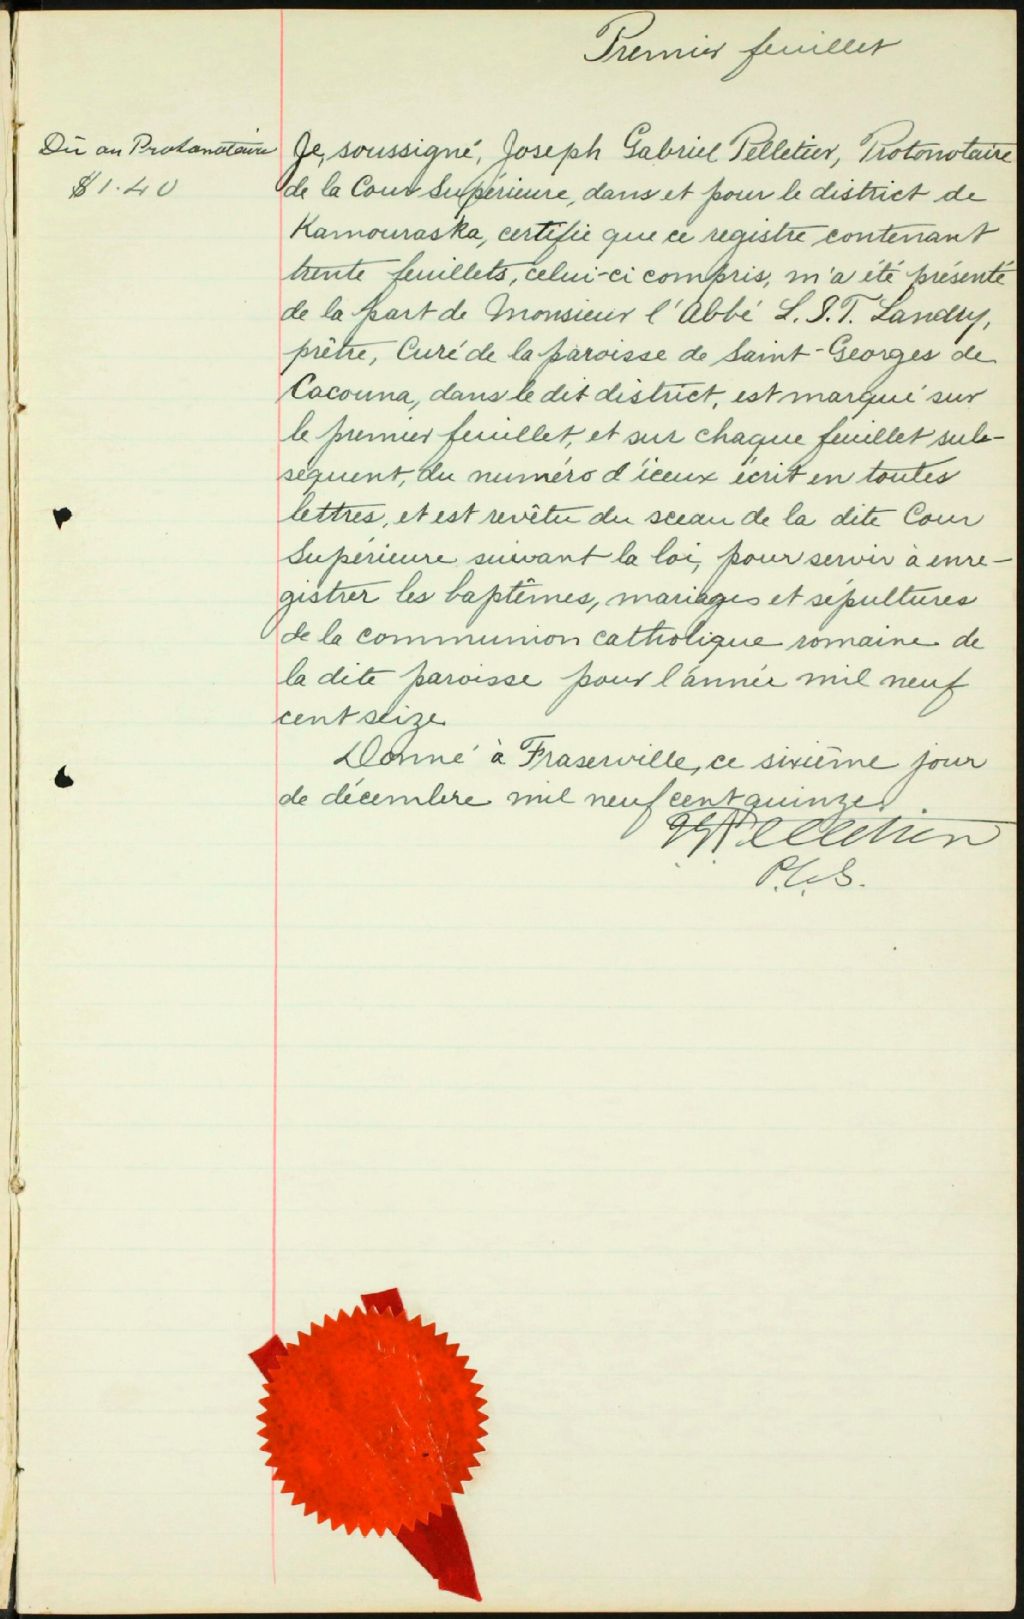 Premier feuillet
Dû au Protonotaire
$1.40
Je, soussigné, Joseph Gabriel Pelletier, Protonotaire
de la Cour Supérieure, dans et pour le district de
Kamouraska, certifie que ce registre contenant
trente feuillets, celui-ci compris, m'a été présenté
de la part de Monsieur l'Abbé L. J. T. Landry,
prêtre, Curé de la paroisse de Saint-Georges de
Cacouna, dans le dit district, est marqué sur
le premier feuillet, et sur chaque feuillet sub-
séquent, du numéro d'iceux écrit en toutes
lettres, et est revêtu du sceau de la dite Cour
Supérieure suivant la loi, pour servir à enre-
gistrer les baptêmes, mariages et sépultures
de la communion catholique romaine de
la dite paroisse pour l'année mil neuf
cent seize
Donné à Fraserville, ce sixième jour
de décembre mil neuf cent quinze.
JGPelletier
P.C.S.